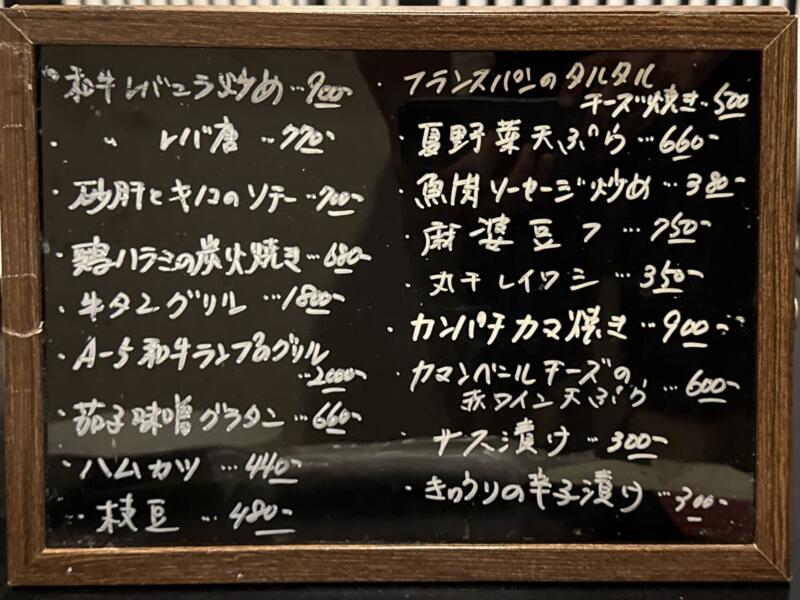 ・和牛レバニラ炒め…900-
・〃 レバ唐…770-
・砂肝とキノコのソテー…700-
・鶏ハラミの炭火焼き…680-
・牛タングリル…1800-
・A-5和牛ランプのグリル
…2000-
・茄子味噌グラタン…660-
・ハムカツ…440-
・枝豆…480-
・フランスパンのタルタル
チーズ焼き…500
・夏野菜天ぷら…660-
・魚肉ソーセージ炒め…380-
・麻婆豆フ…750-
・丸干しイワシ…350-
・カンパチカマ焼き…900-
・カマンベールチーズの
赤ワイン天ぷら…600-
・ナス漬け…300-
・きゅうりの辛子漬け…300-